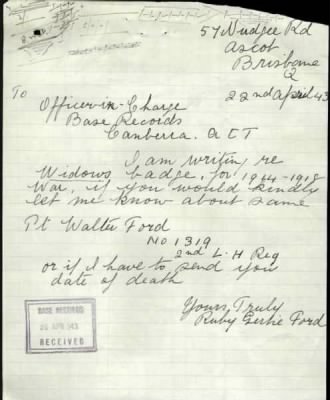 57 Nudgee Rd
Ascot
Brisbane
Q
22nd April 43
To
Officer-in-Charge
Base Records
Canberra. A C T
I am writing re
Widows badge, for 1914-1918
War, if you would kindly
let me know about same
Pt Walter Ford
No 1319
2nd L. H Reg
or if I have to send you
date of death
Yours Truly
Ruby Gertie Ford
BASE RECORDS
APR 1943
RECEIVED